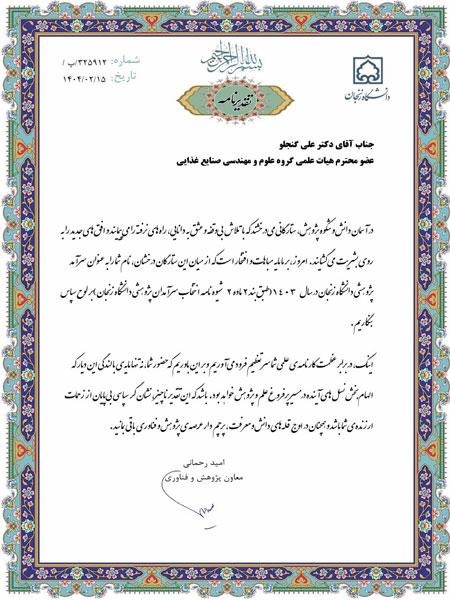 بسم الله الرحمن الرحیم
دانشگاه زنجان
شماره: ۳۲۵۹۱۲/پ /
تاریخ: ۱۴۰۴/۰۲/۱۵
تقدیرنامه
جناب آقای دکتر علی گنجلو
عضو محترم هیات علمی گروه علوم و مهندسی صنایع غذایی
در آسمان دانش و شکوه پژوهش، ستارگانی می درخشند که با تلاش بی وقفه و عشق به دانایی، راه‌های نرفته را می پیمایند و افق های جدید را به
روی بشریت می گشایند. امروز، بر ما مایه مباهات و افتخار است که از میان این ستارگان درخشان، نام شما را به عنوان سرآمد
پژوهشی دانشگاه زنجان در سال ۱۴۰۳ (طبق بند ۲ ماده ۲ شیوه نامه انتخاب سرآمدان پژوهشی دانشگاه زنجان) بر لوح سپاس
بنگاریم.
اینک، در برابر عظمت کارنامه‌ی علمی شما سر تعظیم فرود می آوریم و بر این باوریم که حضور شما، نه تنها مایه‌ی بالندگی این دیار که
الهام بخش نسل های آینده در مسیر پر فروغ علم و پژوهش خواهد بود. باشد که این تقدیر ناچیز، نشان گر سپاسی بی پایان از زحمات
ارزنده‌ی شما باشد و همچنان در اوج قله های دانش و معرفت، پرچم دار عرصه‌ی پژوهش و فناوری باقی بمانید.
امید رحمانی
معاون پژوهش و فناوری